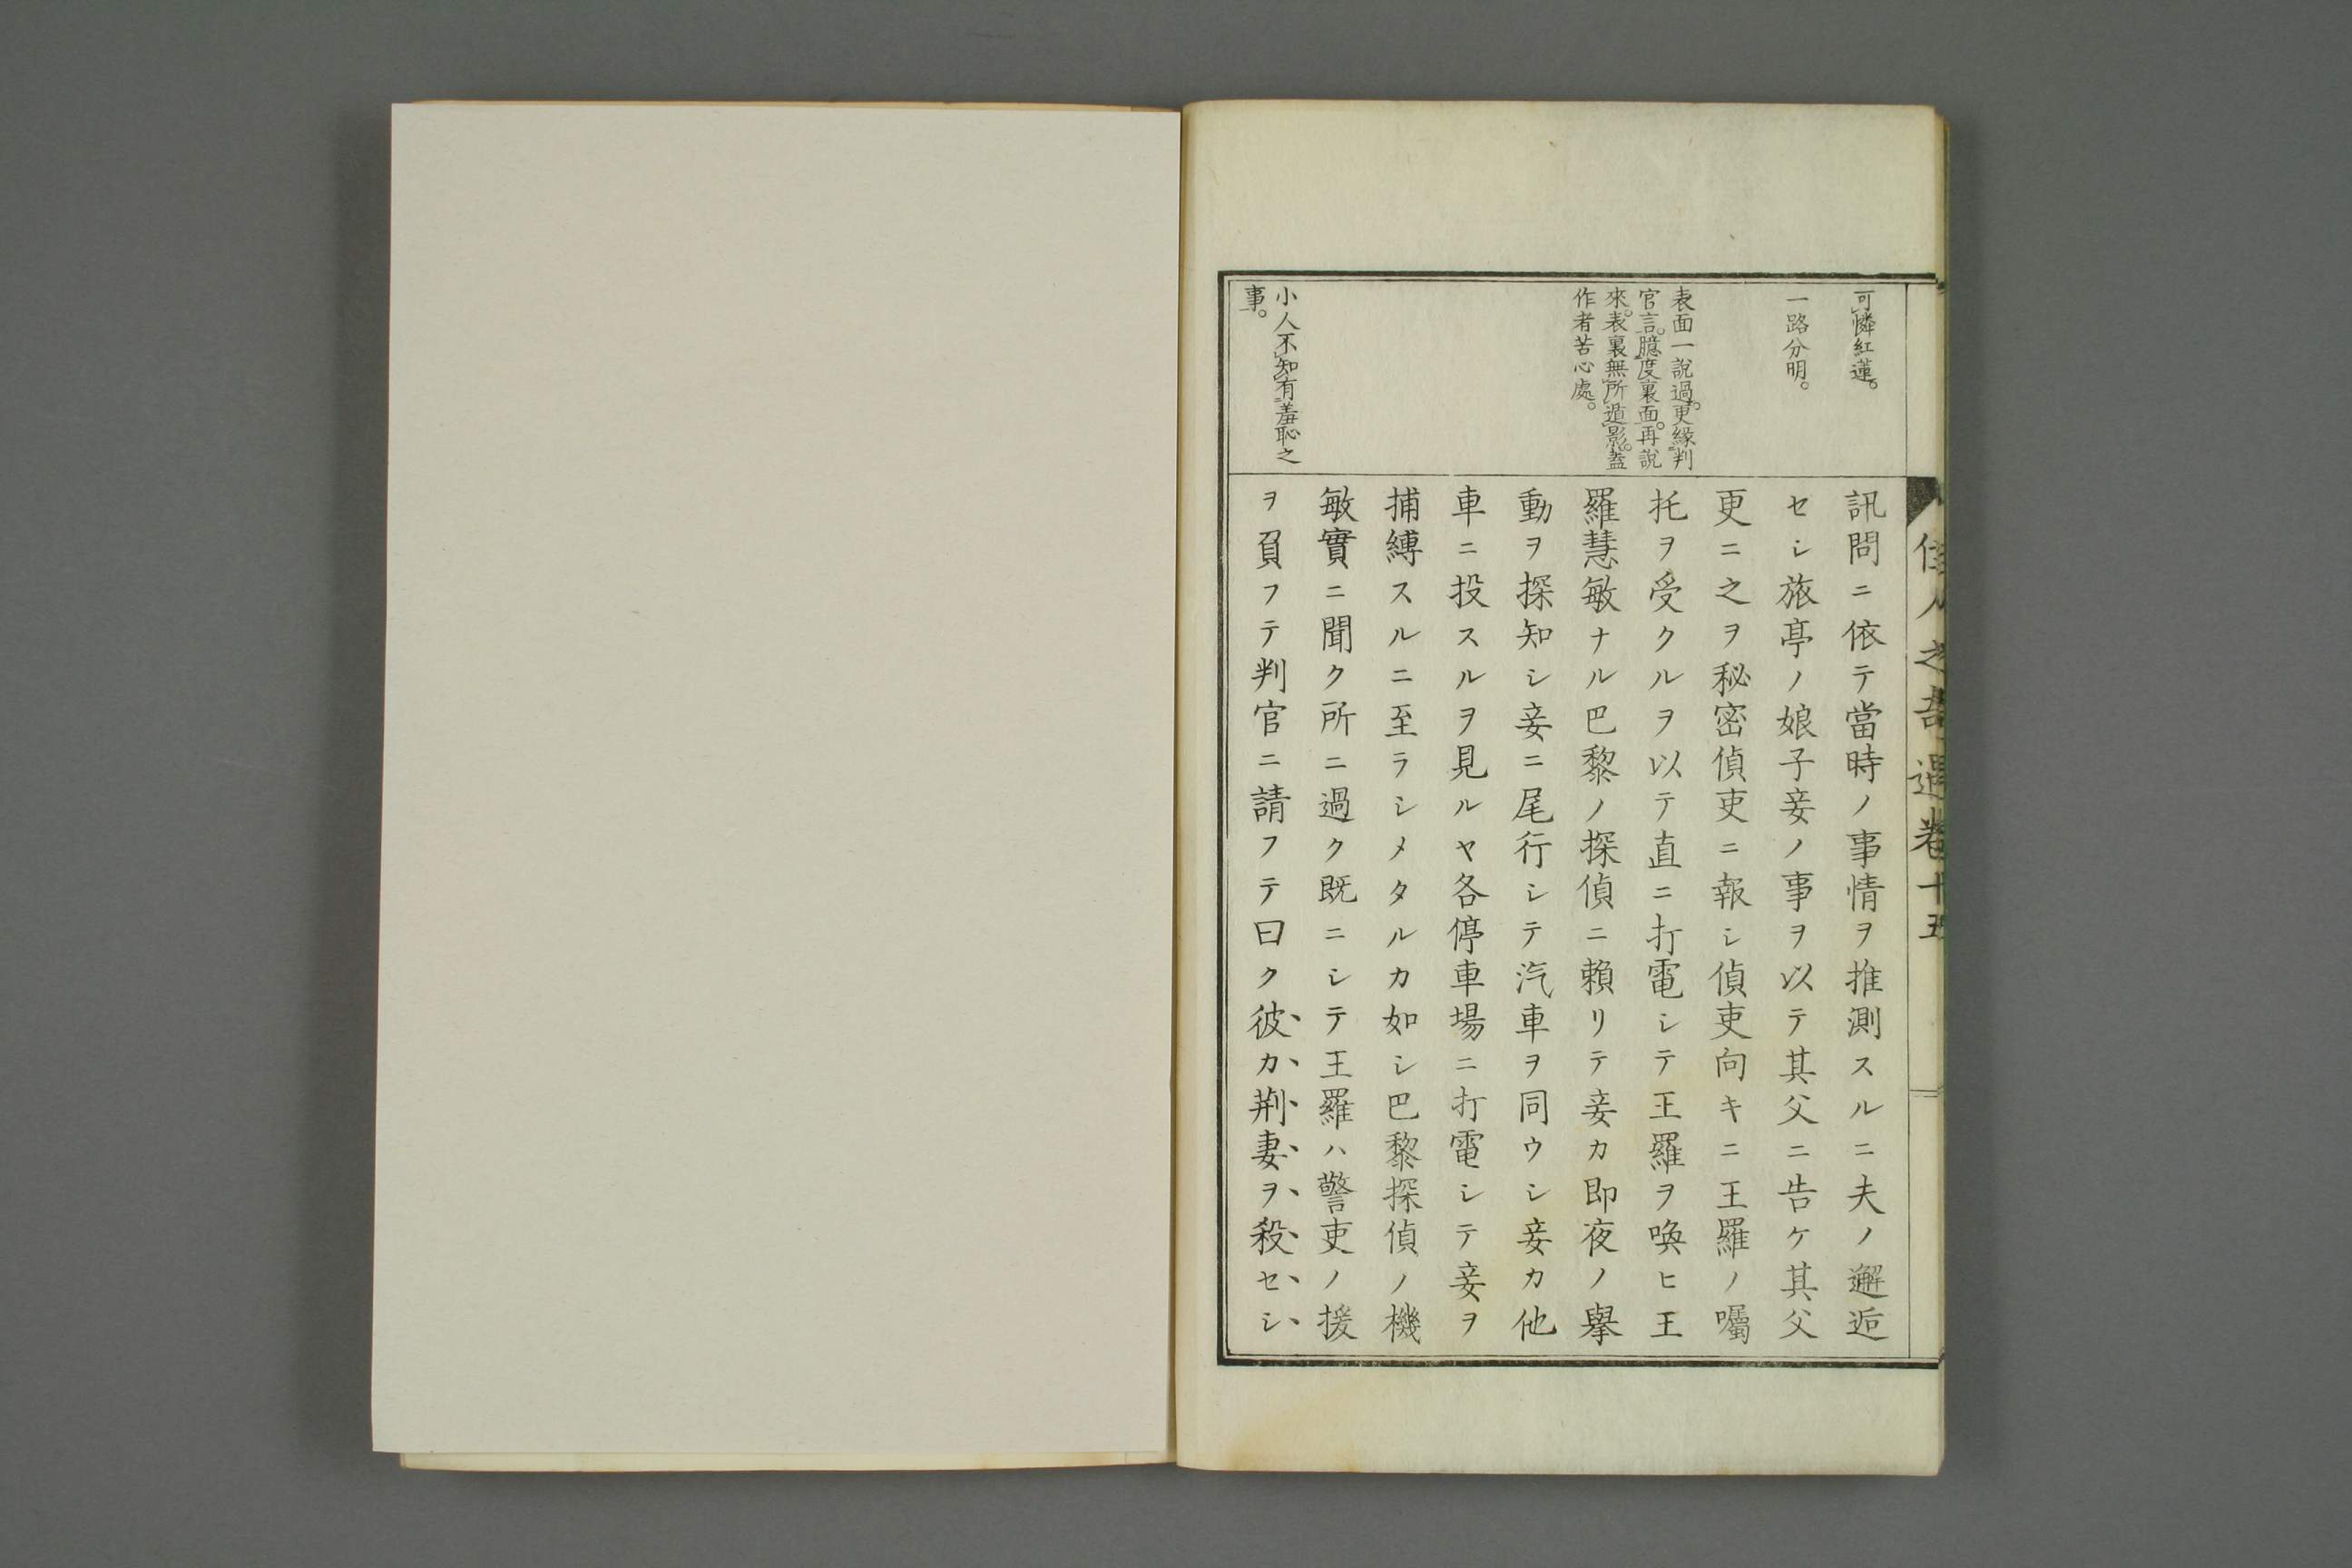 佳人之奇遇卷十五
可憐紅蓮。
一路分明。
表面一說過。更緣判
官言。臆度裏面。再說
來。表裏無所遁影。蓋
作者苦心處。
小人不知有羞恥之
事。
訊問ニ依テ當時ノ事情ヲ推測スルニ夫ノ邂逅
セシ旅亭ノ娘子妾ノ事ヲ以テ其父ニ告ケ其父
更ニ之ヲ秘密偵吏ニ報シ偵吏向キニ王羅ノ囑
托ヲ受クルヲ以テ直ニ打電シテ王羅ヲ喚ヒ王
羅慧敏ナル巴黎ノ探偵ニ賴リテ妾カ即夜ノ擧
動ヲ探知シ妾ニ尾行シテ汽車ヲ同ウシ妾カ他
車ニ投スルヲ見ルヤ各停車場ニ打電シテ妾ヲ
捕縛スルニ至ラシメタルカ如シ巴黎探偵ノ機
敏實ニ聞ク所ニ過ク既ニシテ王羅ハ警吏ノ援
ヲ負フテ判官ニ請フテ曰ク彼カ荆妻ヲ殺セシ